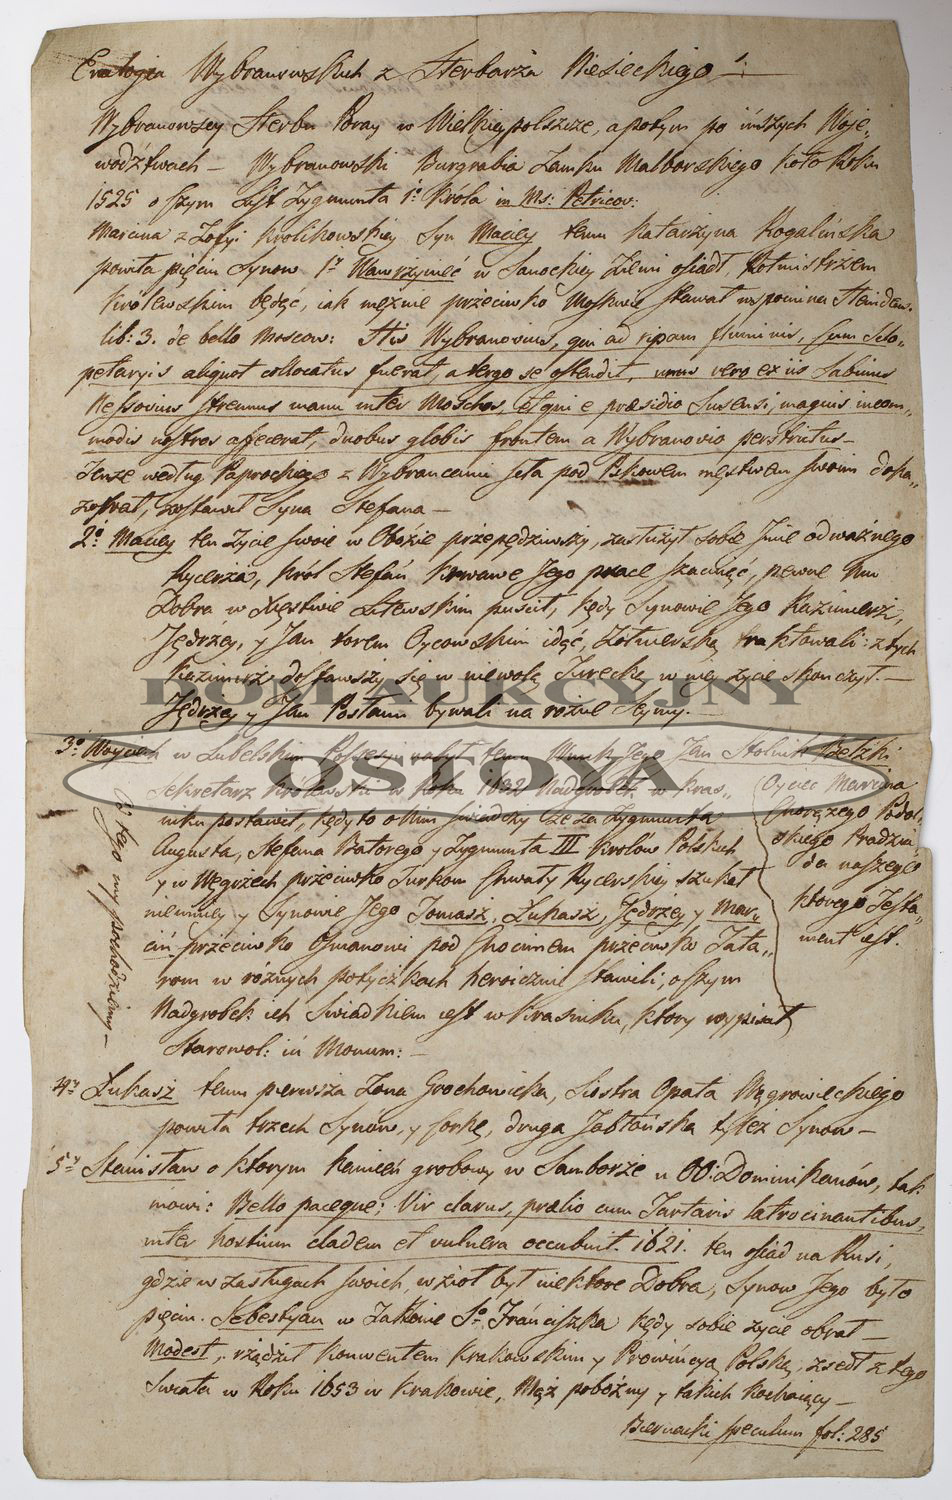 Wybranowskich z Herbarza Niesieckiego
Wybranowscy Herbu Poray w Wielkieypolszcze, a potym po inszych Woje„
wodztwach – Wybranowski Burgrabia Zamku Malborskiego koło Roku
1525 o czym List Zygmunta 1o Króla in Ms: Petricov:
Marcina z Zofyi Krolikowskiey Syn Maciey temu Katarzyna Rogalińska
powiła pięciu Synow 1y Wawrzyniec w Sanockiey Ziemi osiadł, Rotmistrzem
Krolewskim będąc, iak mężnie przeciwko Moskwie stawał wspomina Heiden.
lib: 3. de bello Moscov: His Wybranovius, qui ad ripam fluminis, cum Sclo„
petaryis aliquot collocatus fuerat, a tergo se ostendit, unus vero ex iis Sabinus
Nessovius strenuus manu inter Moschos, et qui e præsidio Susensi, magnis incom„
modis nostros affecerat, duobus globis frontem a Wybranovio perstrictus –
Tenze według Paprockiego z Wybrancami lata pod Pskowem męstwem swoim
zostawił Syna Stefana –
2o Maciey ten Zycie swoie w Obozie przepędziwszy, zasłużył sobie Jmie odważnego
Rycerza, Król Stefan krwawe Jego prace szacuiąc, pewne Mu
Dobra w Xięstwie Litewskim puścił, kędy Synowie Jego Kazimierz,
Jędrzey, y Jan torem Oycowskim idąc, Zołnierską traktowali: z tych
Kazimierz dostawszy się w niewolę Turecką w niey zycie skonczył. –
Jędrzey y Jan Posłami bywali na rożne Seymy. –
3o Woyciech w Lubelskim nabył temu Wnuk Jego Jan Stolnik Bełzki
Sekretarz Królewski w Roku 1632 Nadgrobek w Kras„
niku postawił, kędy to o Nim świadczy ze za Zygmunta
Augusta, Stefana Batorego y Zygmunta III Krolow Polskich
y w Węgrzech przeciwko Turkom Chwały Rycerskiey szukał
niemniey y Synowie Jego Tomasz, Łukasz, Jędrzey y Mar„
cin przeciwko Osmanowi pod Chocimem przeciwko Tata„
rom w rożnych potyczkach heroicznie stawili, o czym
Nadgrobek ich Swiadkiem iest w Krasniku, ktory wypisał
Starowol: in Monum: –
Oyciec Marcina
Chorązego Podol„
skiego Pradzia„
da naszego
ktorego Testa„
ment iest.
od tego my pochodziemy –
4y Łukasz temu pierwsza Zona Grochowicka, Siostra Opata Węgrowieckiego
powiła trzech Synow, y corkę, druga Jabłońska tyleż Synow –
5y Stanisław o ktorym kamień grobowy w Samborze u OO. Dominikanów, tak
mowi: Bello paceque; Vir clarus, prælio cum Tartaris latrocinantibus,
inter hostium cladem et vulnera occubuit. 1621. ten osiad na Rusi,
gdzie w zasługach swoich wziął był niektore Dobra, Synow Jego było
pięciu. Sebestyan w Zakonie So Franciszka kędy sobie zycie obrał –
Modest, rządził konwentem Krakowskim y Prowincyą Polską, zszedł z tego
Swiata w Roku 1653 w Krakowie, Mąż pobożny y takich kochaiący –
Biernacki speculum fol: 285
DOM AUKCYJNY
OSTOYA